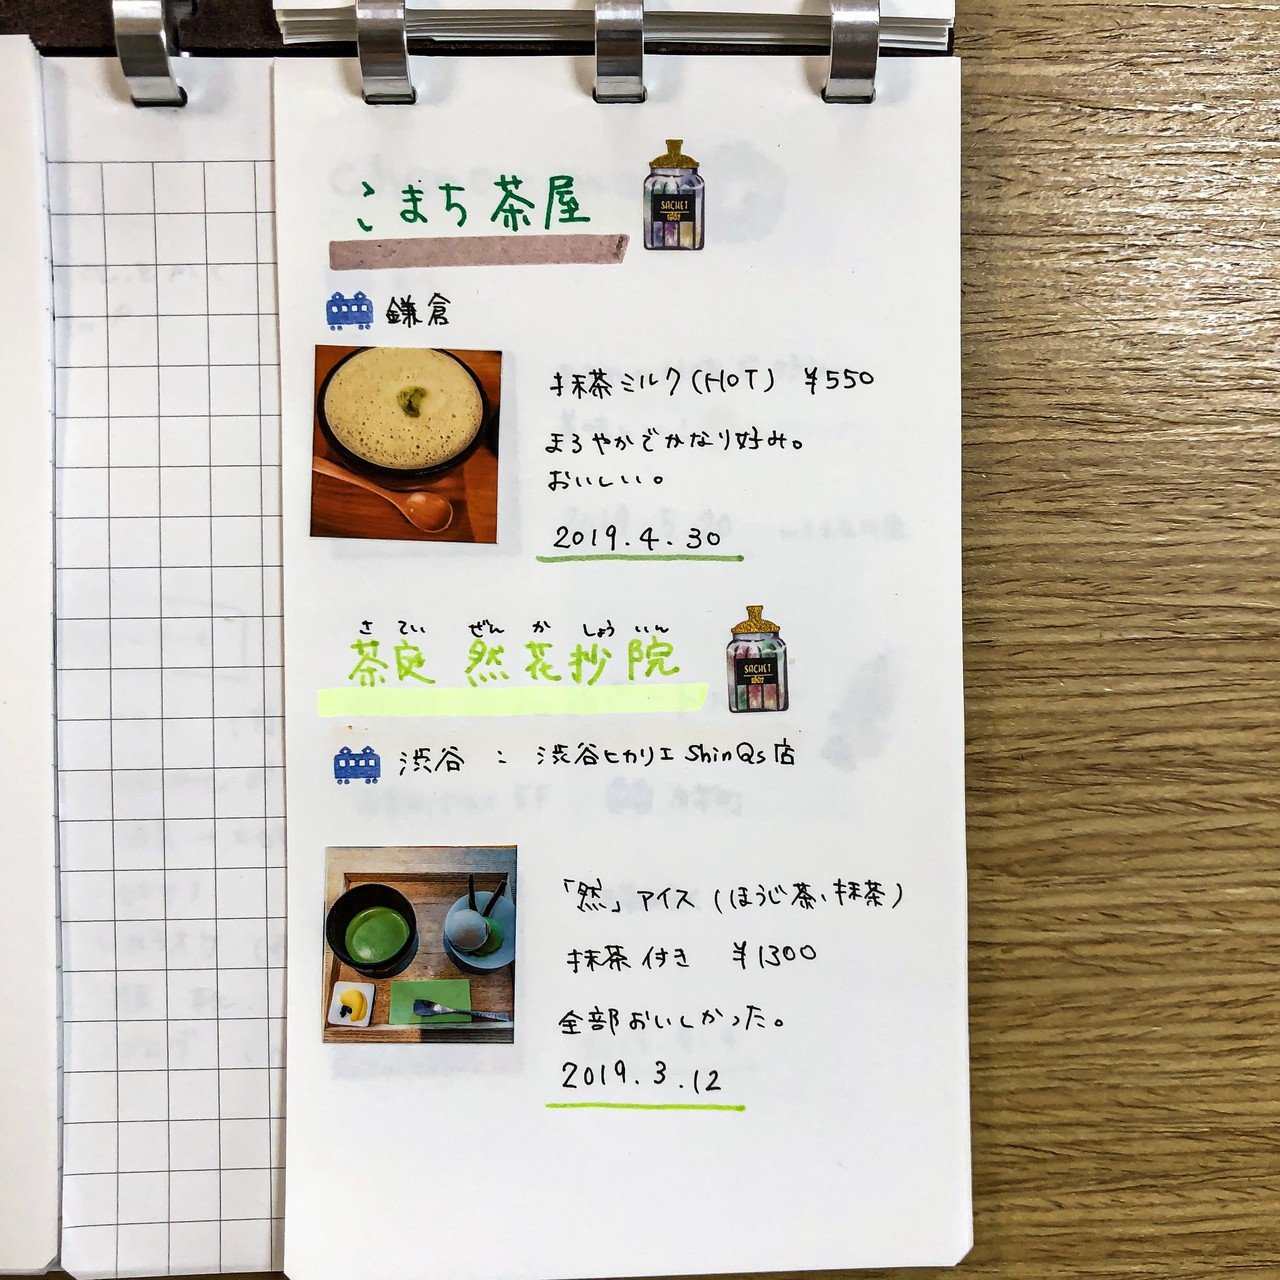 こまち茶屋
SACHET
鎌倉
抹茶ミルク(HOT) ¥550
まろやかでかなり好み。
おいしい。
2019.4.30
さ てい ぜん か しょう いん
茶庭 然花抄院
SACHET
渋谷 : 渋谷ヒカリエ ShinQs店
「然」アイス (ほうじ茶、抹茶)
抹茶付き ¥1300
全部おいしかった。
2019.3.12